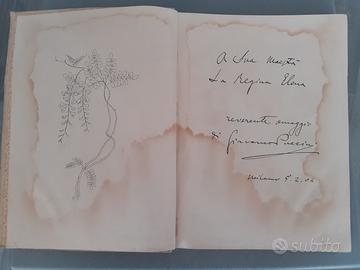 A Sua Maestà
La Regina Elena
reverente omaggio
di Giacomo Puccini
Milano
subito